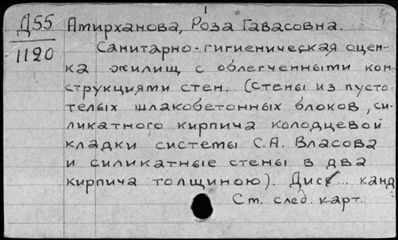 Д55 Амирханова, Роза Гавасовна.
1120
Санитарно-гигиеническая оцен-
ка жилищ с облегченными кон-
струкциями стен. (Стены из пусто-
телых шлакобетонных блоков, си-
ликатного кирпича колодцевой
кладки системы С.А. Власова
и силикатные стены в два
кирпича толщиною). Дисс... канд
Ст. след. карт.